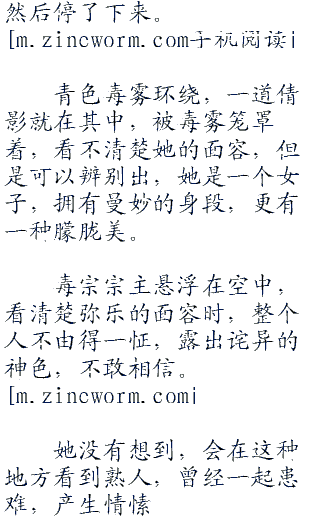 然后停了下来。
[m.zincworm.com手机阅读i
青色毒雾环绕，一道倩
影就在其中，被毒雾笼罩
着，看不清楚她的面容，但
是可以辨别出，她是一个女
子，拥有曼妙的身段，更有
一种朦胧美。
毒宗宗主悬浮在空中，
看清楚弥乐的面容时，整个
人不由得一怔，露出诧异的
神色，不敢相信。
[m.zincworm.comi
她没有想到，会在这种
地方看到熟人，曾经一起患
难，产生情愫